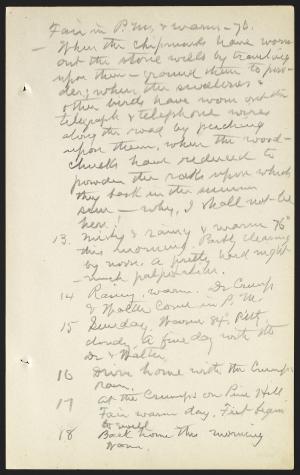 Fair in P.M. & warm - 76.
— When the chipmunks have worn
out the stone walls by traveling
upon them - ground them to pow-
der; when the swallows &
other birds have worn out the
telegraph & telephone wires
along the road by perching
upon them, when the wood-
chucks have reduced to
powder the rocks upon which
they bask in the summer
sun — why, I shall not be
here!
13. Misty & rainy & warm 76°
this morning. Partly clearing
by noon. A pretty bad night
- much palpitation.
14 Rainy, warm. Dr Crump
& Walter come in P.M.
15 Sunday. Warm 84. Partly
cloudy. A fine day with the
Dr & Walter.
16 Drive home with the Crumps
rain.
17 At the Crumps on Pine Hill.
Fair warm day. First begin
to
18 Back home this morning
warm.